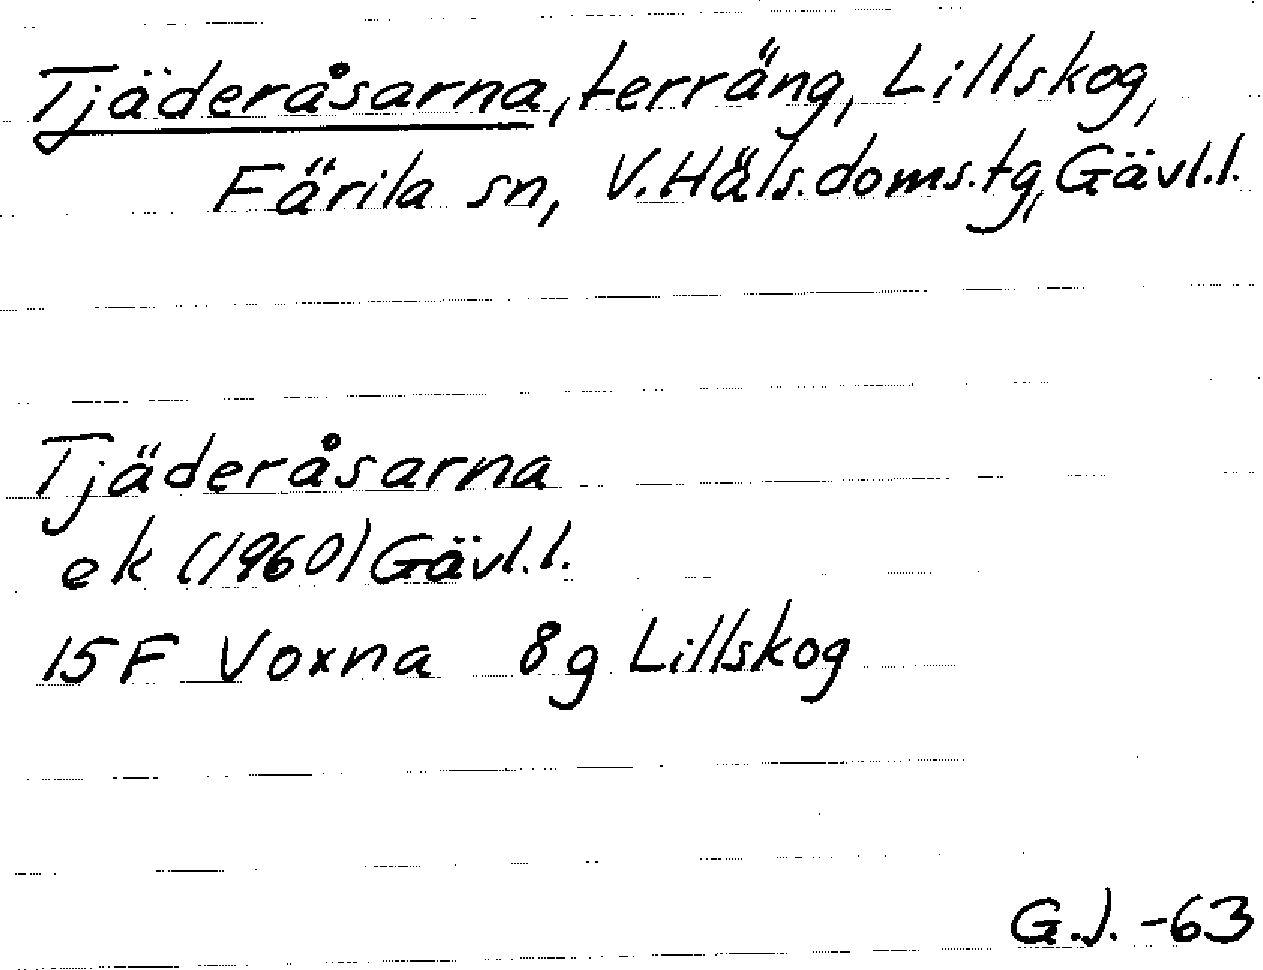 Tjäderåsarna, terräng, Lillskog,
Färila sn, V.Häls.doms.tg, Gävl.l.
Tjäderåsarna
ek (1960) Gävl.l.
15F Voxna 8g Lillskog
G.J. -63